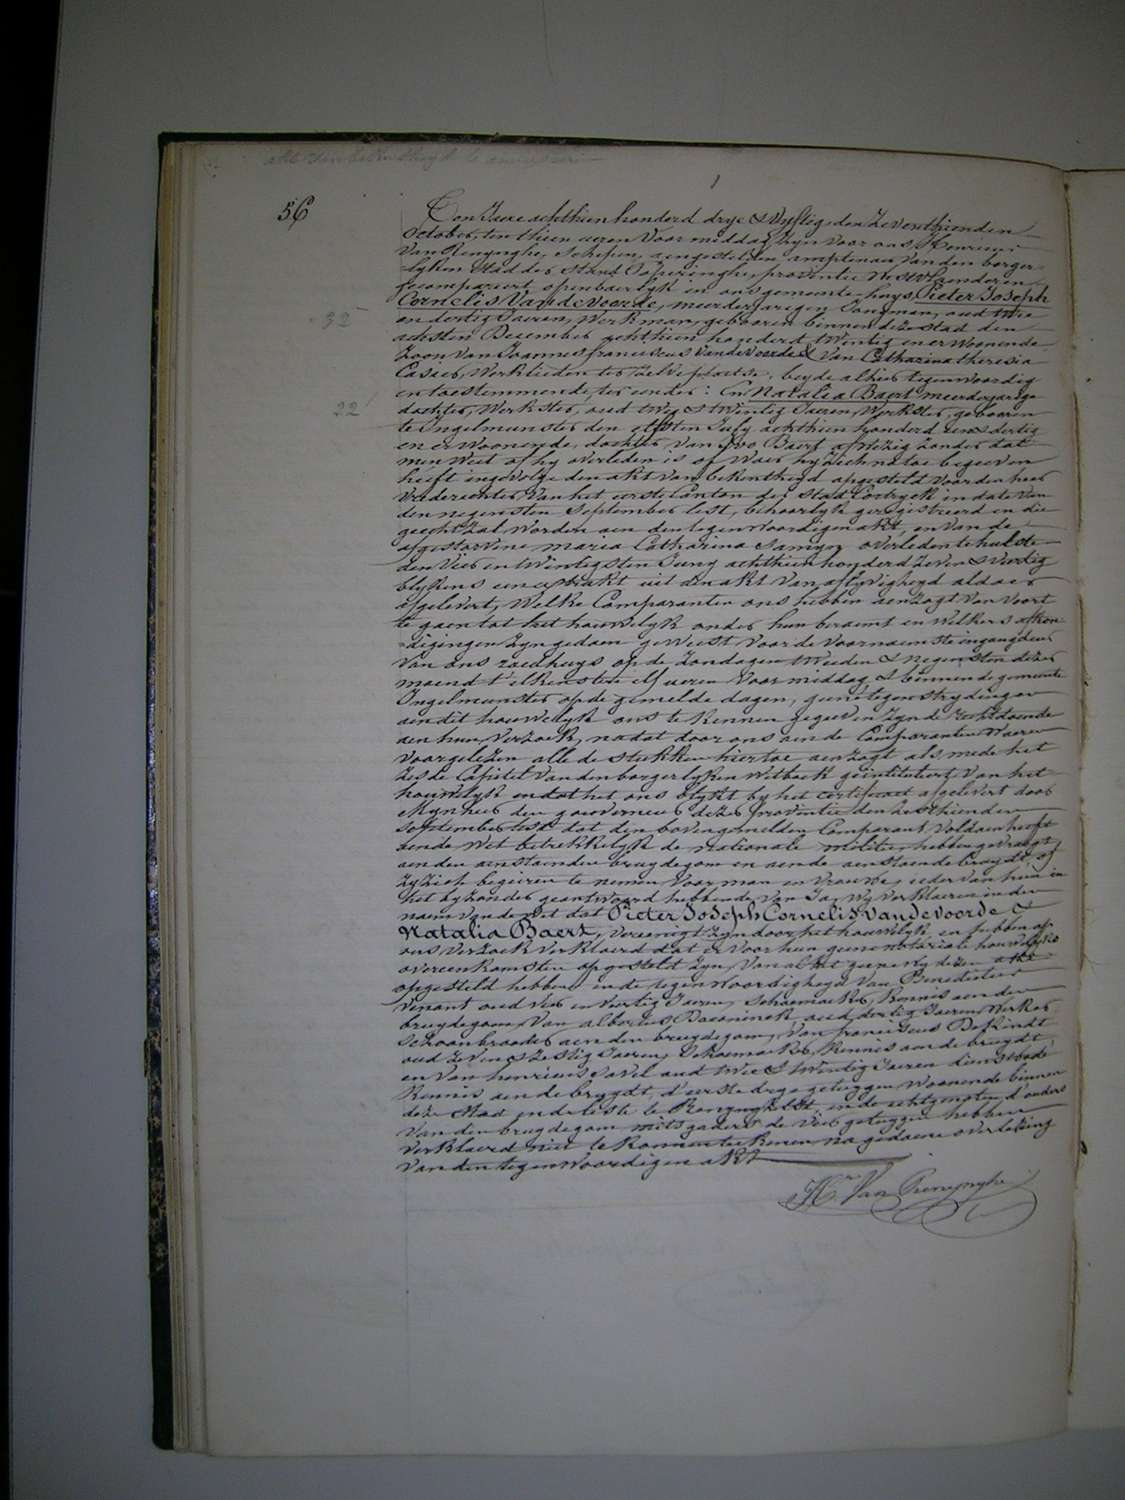 56
Ten Jaere achthien honderd drye & vyftig, den Zeventhienden
October, ten thien ueren Voormiddag, Zyn voor ons, Henricus
Van Renynghe, Schepen, aengestelden amptenaer Van den borger-
-lyken Stad der Stad Poperinghe, provintie Westvlaenderen
gecompareert openbaerlyk in ons gemeente huys, Pieter Joseph
Cornelis Vandevoorde, meerderjarigen Jongman, oud twee
32
en dertig Jaeren, Werkman, gebooren binnen deze stad den
achsten December achthien honderd twintig en er Woonende,
Zoon van Joannes franciscus Vandevoorde & Van Catharina theresia
Casaer, Werklieden ter Zelve plaetse, beyde alhier tegenwoordig
en toestemmende, ter eender: En Natalia Baert meerderjarige
22
dochter, Werkster, oud twee & twintig Jaeren, Werkster, gebooren
te Ingelmunster den elfsten July achthien honderd een & dertig
en er Woonende, dochter Van Ivo Baert afwezig zonder dat
men Weet of hy overleden is of Waer hy Zich na toe begeeven
heeft ingevolge den akt van bekentheyd opgesteld voor den heer
Vrederechter Van het eerste Canton der Stad Cortryck in date Van
den negensten September lest, behoorlyk geregistreerd en die
gehecht Zal Worden aen den tegenwoordigen akt, en Van de
afgestorvene Maria Catharina Samyn overleden te hulste
den Vier en twintigsten Juny achthien honderd Zeven & Veertig
blykens een extrakt uit den akt Van aflyvigheyd aldaer
afgelevert, Welke Comparanten ons hebben aenzogt Van voort
te gaen tot het houwelyk onder hun beraemt en Welkers afkon-
-digingen Zyn gedaen geweest Voor de Voornaemste ingangdeur
Van ons raedhuys op de Zondagen tweeden & negensten dezer
maend t'elkenstens elf ueren Voormiddag & binnen de gemeente
Ingelmunster op de gemelde dagen, geene tegenstrydingen
aen dit houwelyk ons te kennen gegeeven Zynde rechtdoende
aen hun Verzoek, na dat door ons aen de Comparanten Waeren
Voorgelezen alle de stukken hier toe aenzogt als mede het
Zesde Capittel Van den borgerlyken Wetboek geintituleert Van het
houwelyk en dat het ons blykt by het certificaet afgelevert door
Mynheer den gouverneur dezer provintie den Zesthienden
September lest dat den bovengemelden Comparant Voldaen heeft
aende Wet betrekkelyk de nationale militie hebben gevraegt
aen den aenstaenden bruydegom en aen de aenstaende bruydt, of
Zy Zich begeeren te nemen Voor man en Vrouwe, ieder van hun in
het byzonder geantwoord hebbende Van Ja, Wy Verklaeren in den
naem Van de Wet dat Pieter Joseph Cornelis Vandevoorde &
Natalia Baert, Vereenigt Zyn door het houwelyk, en hebben op
ons Verzoek Verklaerd dat er Voor hun geene notariale houwelyks
overeenkomsten opgesteld Zyn, Van al het geene Wy dezen akt
opgesteld hebben in de tegenwoordigheyd Van Benedictus
Venant oud Vier en Veertig Jaeren, Schoemaeker, Kennis aen den
bruydegom, Van albertus Deconinck oud dertig Jaeren, Werker
Schoonbroeder aen den bruydegom, Van franciscus Dekindt
oud Zeven & Zestig Jaeren, Schoemaeker, Kennis aen de bruydt
en Van henricus Pavel oud twee & twintig Jaeren dienstbode
Kennis aen de bruydt, d'eerste drye getuygen Woonende binnen
deze Stad en de leste te Renynghelst, en de echtgenoten, d'ouders
Van den bruydegom mitsgaders de Vier getuygen hebben
Verklaerd niet te Konnen teekenen na gedaene overlezing
Van den tegenwoordigen akt
Hri Van Renynghe